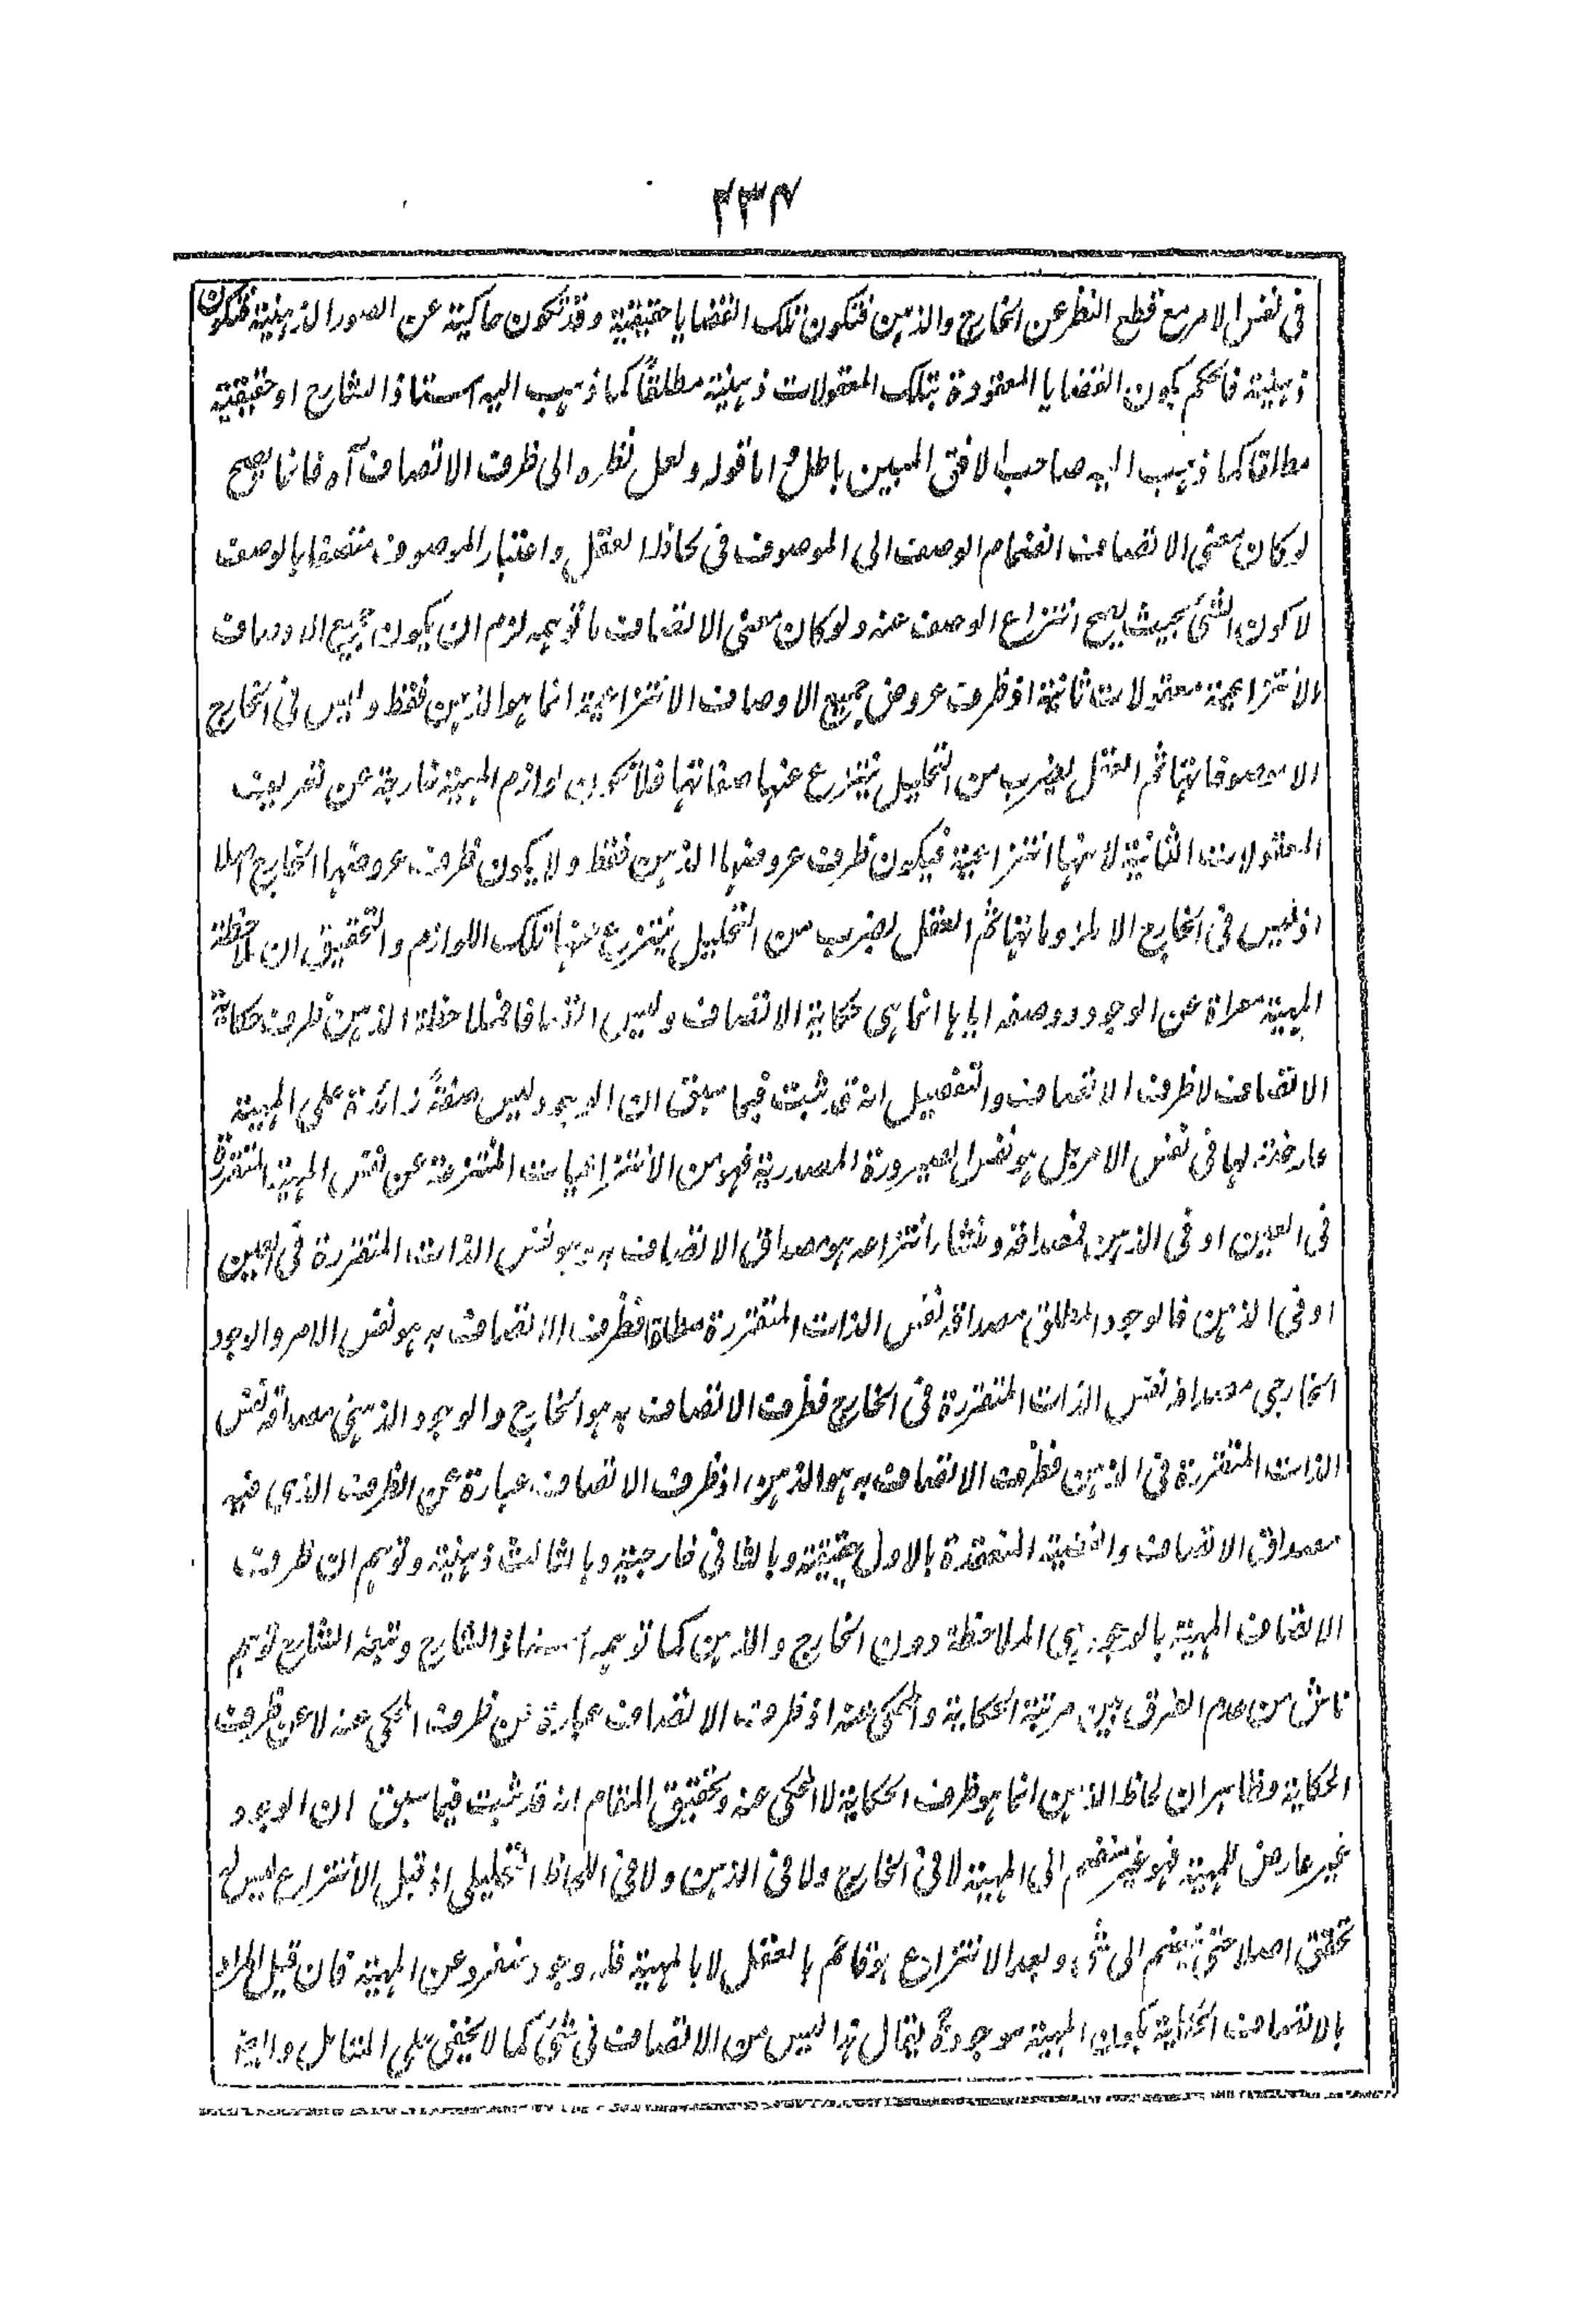 ٢٣٤
في نفس الامر مع قطع النظر عن الخارج والذهن فتكون تلك القضايا حقيقية وقد تكون حاكية عن الصور الذهنية فتكون
ذهنية فالحكم بكون القضايا المعقودة بتلك المعقولات ذهنية مطلقاً كما ذهب اليه استاذ الشارح او حقيقية
مطلقا كما ذهب اليه صاحب الافق المبين باطل واما قوله ولعل نظره الى ظرف الاتصاف آه فانما يصح
لو كان معنى الاتصاف انضمام الوصف الى الموصوف في لحاظ العقل واعتبار الموصوف متصفا بالوصف
لا كون الشئ بحيث يصح انتزاع الوصف عنه ولو كان معنى الاتصاف ما توهمه لزم ان يكون جميع الاوصاف
الانتزاعية معقولات ثانية اذ ظرف عروض جميع الاوصاف الانتزاعية انما هو الذهن فقط وليس في الخارج
الا موصوفاتها ثم العقل بضرب من التحليل ينتزع عنها صفاتها فلا تكون لوازم المهية خارجة عن تعريف
المعقولات الثانية لانها انتزاعية فيكون ظرف عروضها الذهن فقط ولا يكون ظرف عروضها الخارج اصلا
اذ ليس في الخارج الا ملزوماتها ثم العقل بضرب من التحليل ينتزع عنها تلك اللوازم والتحقيق ان ملاحظة
المهية معراة عن الوجود ووصفه اياها انما هي حكاية الاتصاف وليس اتصافا فملاحظة الذهن ظرف حكاية
الاتصاف لا ظرف الاتصاف والتفصيل انه قد ثبت فيما سبق ان الوجود ليس صفةً زائدة على المهية
عارضة لها في نفس الامر بل هو نفس الصيرورة المصدرية فهو من الانتزاعيات المنتزعة عن نفس المهية المتقررة
في العين او في الذهن فمصداقه ومنشأ انتزاعه هو مصداق الاتصاف به وهو نفس الذات المتقررة في العين
او في الذهن فالوجود المطلق مصداقه نفس الذات المتقررة مطلقا فظرف الاتصاف به هو نفس الامر والوجود
الخارجي مصداقه نفس الذات المتقررة في الخارج فظرف الاتصاف به هو الخارج والوجود الذهني مصداقه نفس
الذات المتقررة في الذهن فظرف الاتصاف به هو الذهن اذ ظرف الاتصاف عبارة عن الظرف الذي فيه
مصداق الاتصاف والقضية المنعقدة بالاول حقيقية وبالثاني خارجية وبالثالث ذهنية وتوهم ان ظرف
الاتصاف المهية بالوجود هي الملاحظة دون الخارج والذهن كما توهمه استاذ الشارح وتبعه الشارح توهم
ناش من عدم الفرق بين مرتبة الحكاية والمحكى عنه اذ ظرف الاتصاف عبارة عن ظرف المحكى عنه لا عن ظرف
الحكاية وظاهر ان لحاظ الذهن انما هو ظرف الحكاية لا المحكى عنه وتحقيق المقام انه قد ثبت فيما سبق ان الوجود
غير عارض للمهية فهو غير منضم الى المهية لا في الخارج ولا في الذهن ولا في اللحاظ التحليلي اذ قبل الانتزاع ليس له
تحقق اصلا حتى ينضم الى شئ وبعد الانتزاع هو قائم بالعقل لا بالمهية فله وجود منفرد عن المهية فان قيل المراد
بالاتصاف الحكاية بكون المهية موجودة يقال هذا ليس من الاتصاف في شئ كما لا يخفى على المتامل وايضا